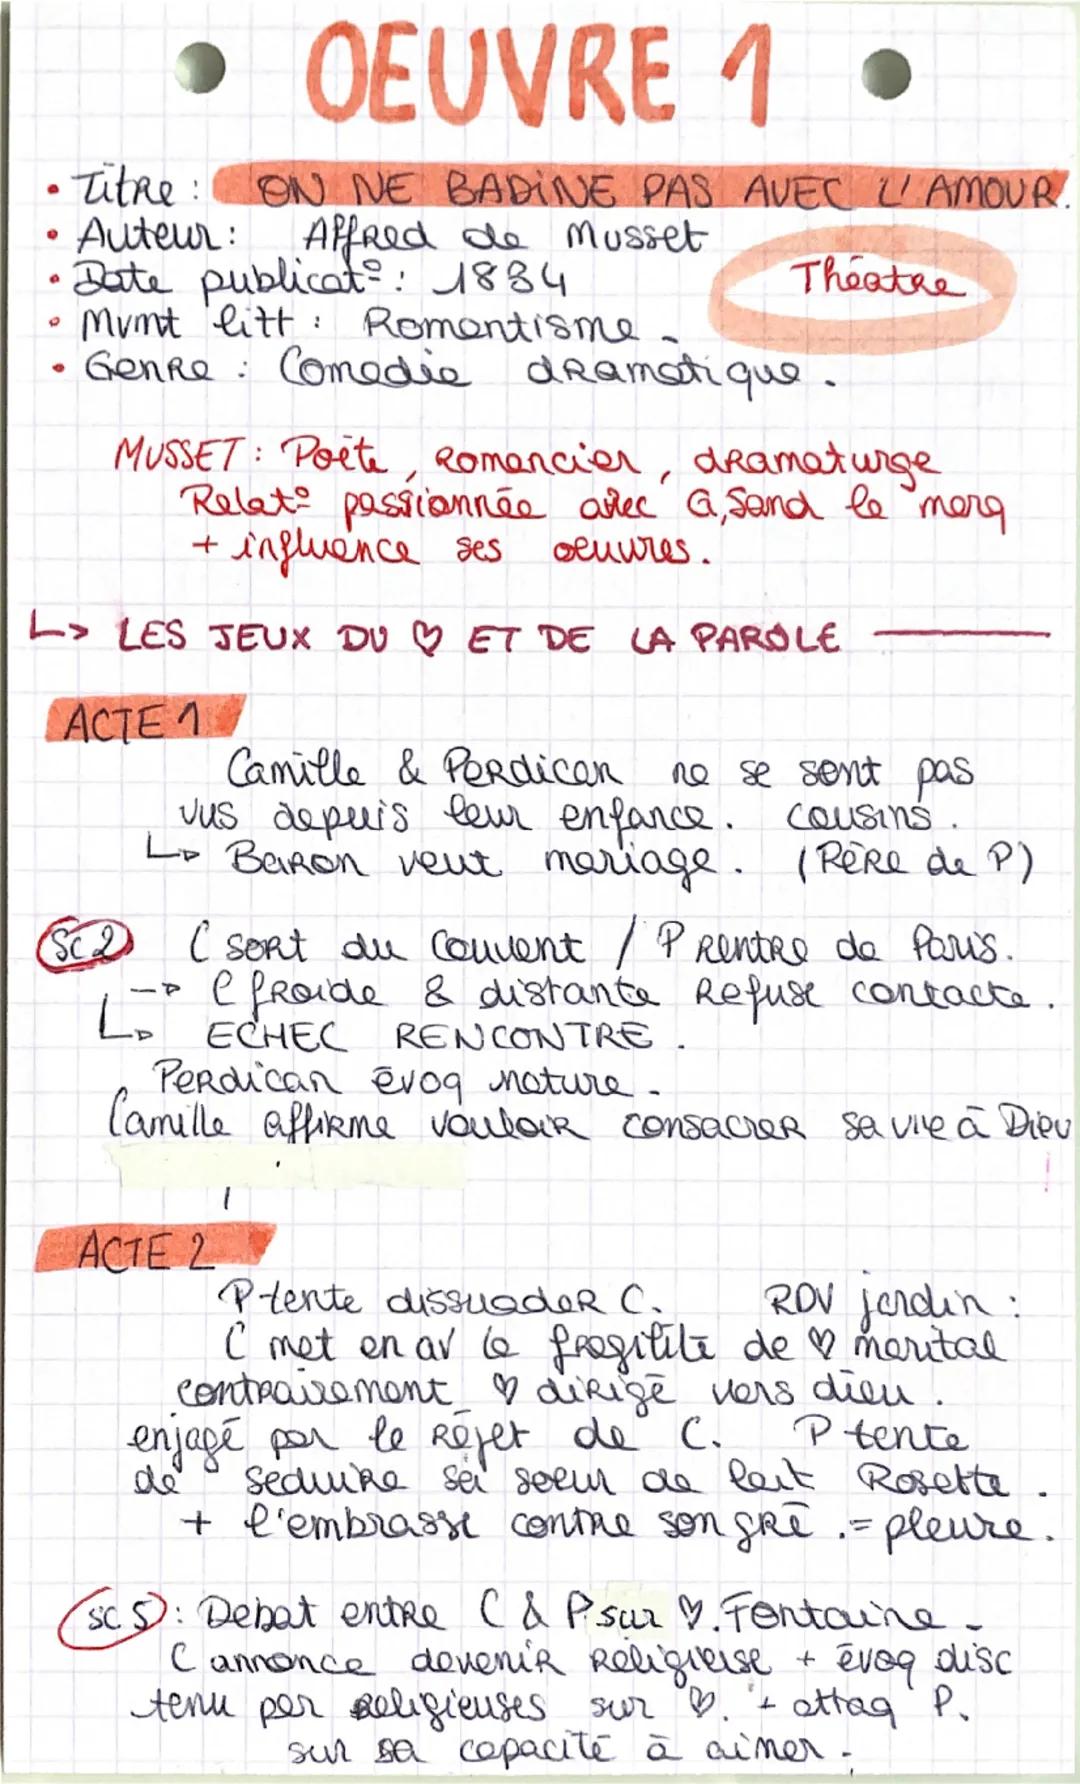 OEUVRE 1
• Titre : ON NE BADINE PAS AVEC L'AMOUR.
• Auteur : Alfred de Musset
• Date publicatº : 1834
Théatre
• Mvmt litt : Romantisme.
• Genre : Comedie dramatique.
MUSSET : Poète, romancier, dramaturge
Relatº passiannée avec G, Sand le marq
+ influence ses oeuvres.
↳ LES JEUX DU ♡ ET DE LA PAROLE
ACTE 1
Camille & Perdican ne se sont pas
vus depuis leur enfance. cousins.
↳ Baron veut mariage. (Père de P)
Sc 2 C sort du Couvent / P rentre de Paris.
→ C froide & distante Refuse contacte.
↳ ECHEC RENCONTRE.
Perdican évoq nature.
Camille affirme vouloir consacrer sa vie à Dieu
ACTE 2
P tente dissuader C. RDV jardin :
C met en av la fragilité de ♡ marital
contrairement ♡ dirigé vers dieu.
enjagé par le réjet de C. P tente
de seduire sa soeur de lait Rosette.
+ l'embrasse contre son gré. = pleure.
sc 5 : Debat entre C & P sur ♡. Fontaine.
C annonce devenir religieuse + évoq disc
tenu par religieuses sur ♡. + attaq P.
sur sa capacité à aimer.